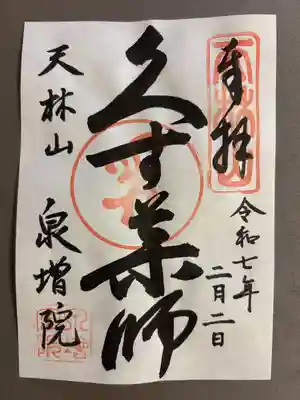 奉拝
令和七年
二月二日
久す薬師
天林山
泉増院